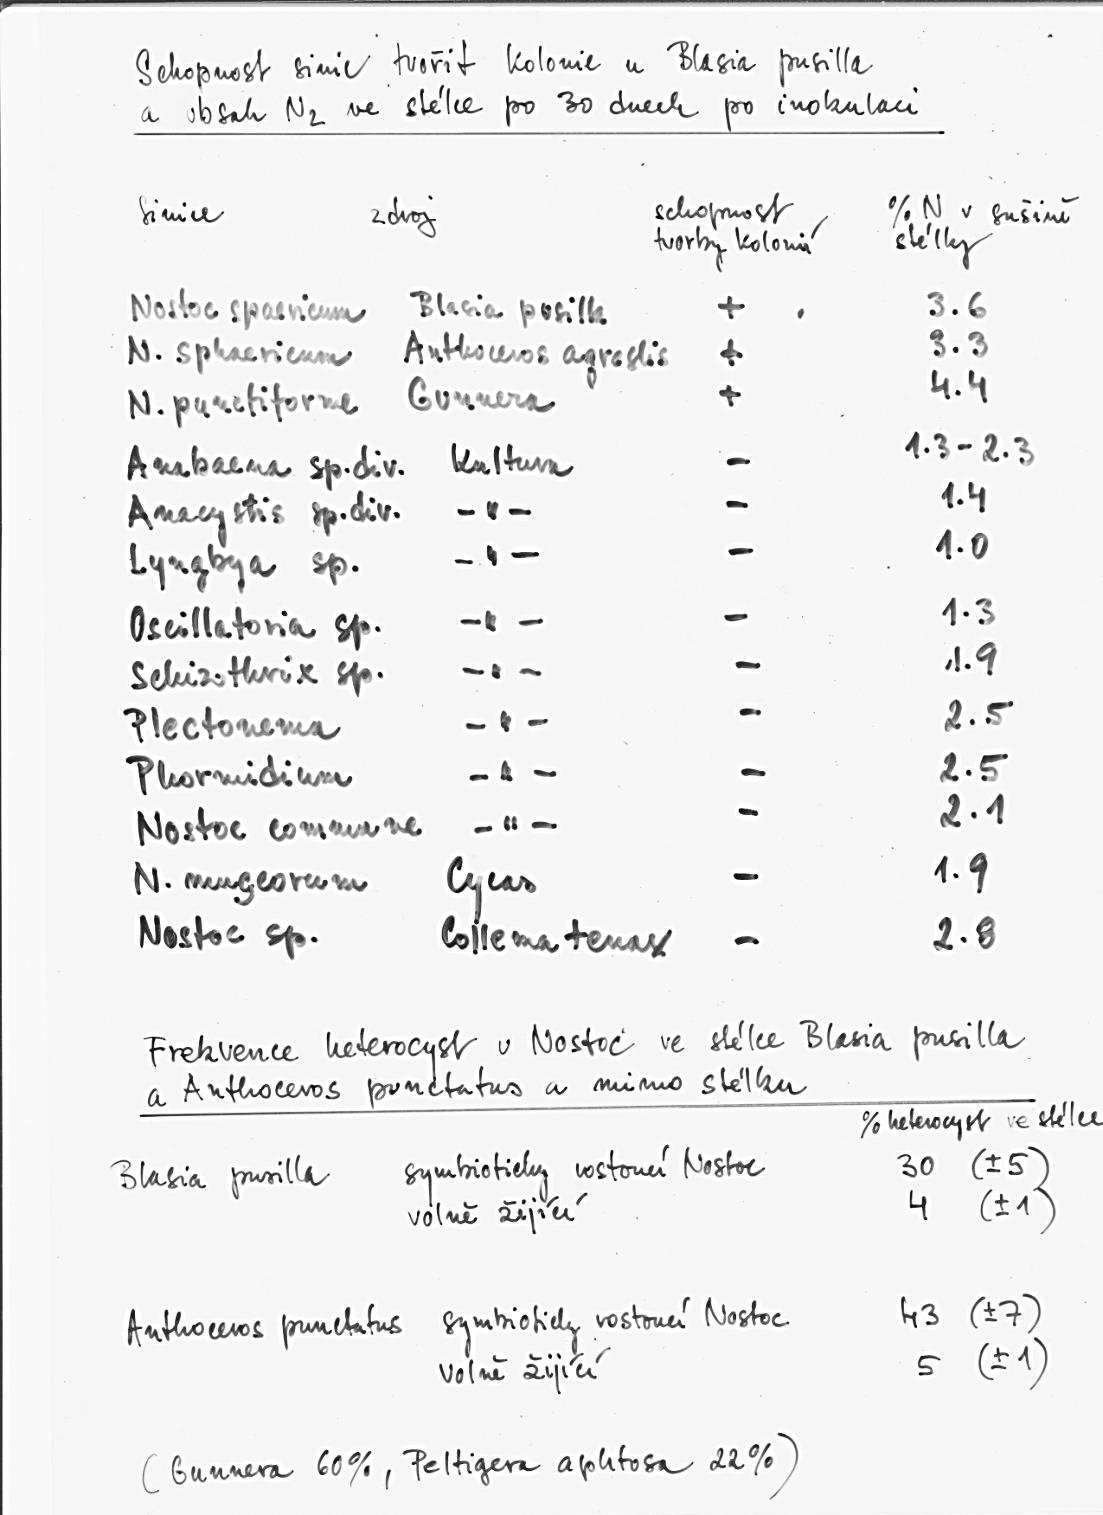 Schopnost sinic tvořit kolonie u Blasia pusilla
a obsah N2 ve stélce po 30 dnech po inokulaci
Sinice zdroj schopnost tvorby kolonií % N v sušině stélky
Nostoc spaericum Blasia pusilla + 3.6
N. sphaericum Anthoceros agrestis + 3.3
N. punctiforme Gunnera + 4.4
Anabaena sp.div. kultura - 1.3-2.3
Anacystis sp.div. -"- - 1.4
Lyngbya sp. -"- - 1.0
Oscillatoria sp. -"- - 1.3
Schizothrix sp. -"- - 1.9
Plectonema -"- - 2.5
Phormidium -"- - 2.5
Nostoc commune -"- - 2.1
N. mugeorum Cycas - 1.9
Nostoc sp. Collema tenax - 2.8
Frekvence heterocyst u Nostoc ve stélce Blasia pusilla
a Anthoceros punctatus a mimo stélku
% heterocyst ve stélce
Blasia pusilla symbioticky rostoucí Nostoc 30 (±5)
volně žijící 4 (±1)
Anthoceros punctatus symbioticky rostoucí Nostoc 43 (±7)
volně žijící 5 (±1)
(Gunnera 60%, Peltigera aphtosa 22%)